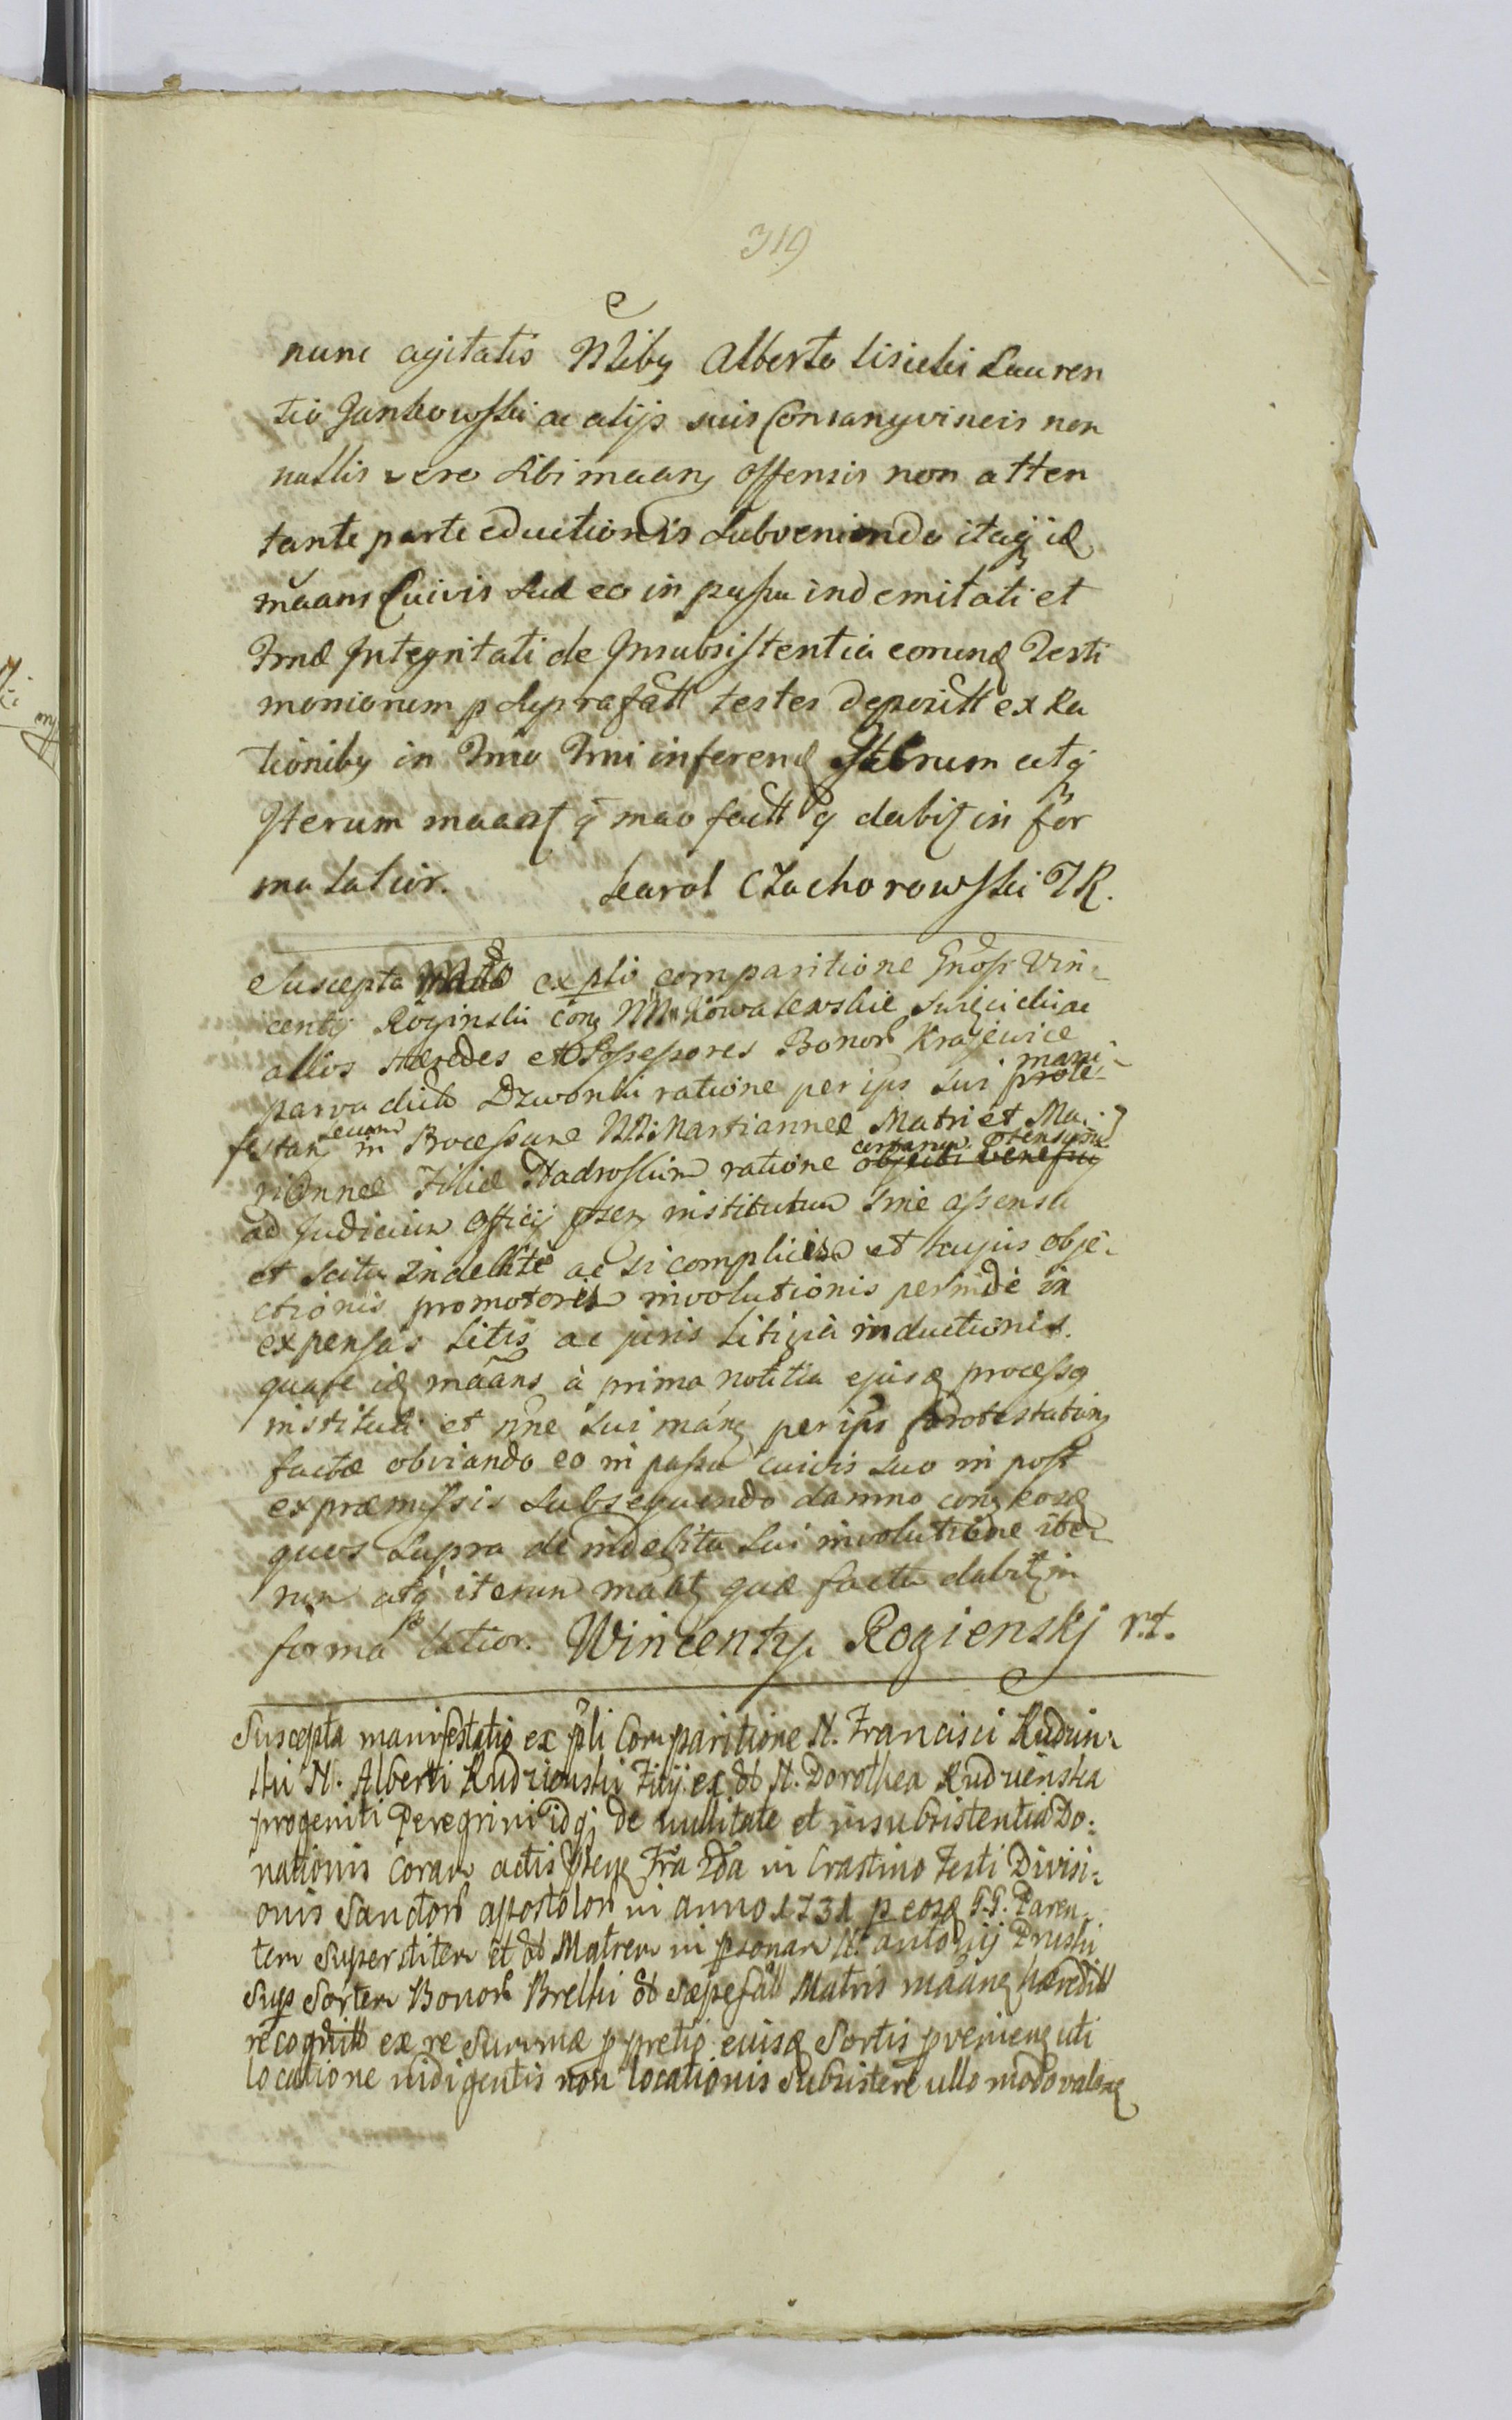 319
nunc agitatis Nlibꝫ Alberto Lisicki Lauren
tio Jankowski ac alijs suis Consangvineis non
nullis vero sibi maanꝫ offensis non atten
tante parte eductionis Subveniendo itaqꝫ idꝫ
maans Cuivis suæ eo in passu indemitati et
Jmæ Jntegritati de Jnsubsistentia eorundꝫ Testi
moniorum p supra fatt testes deposutt ex Ra
tionibꝫ in Jmo Jmi inferendꝫ Jterum atqꝫ
Jterum maast q mao factt q dabit in for
ma latior. Karol Czachorowski TR.
Suscepta ex pli comparitione Gnosi Vin-
centij Roginski conꝫ NN Kowalewskie Suigicki ac
alios Hæredes et Possessores Bonorũ Krajewice
parva dicta Dzwonki ratione per ips sui mani-
prote-
festan secum in Processune NN: Mariannæ Matri et Ma-
riannæ Filiæ Nadroskim ratione certarum Ofensarum
objecti venefic
ad Judicium Officij psenꝫ institutum sine assensu
et scitu Indebite ac si complicem et hujus obje-
ctionis promotoris involutionis perinde in
expensas Litis ac juris Litigia inductionis.
quare idꝫ maans à prima notitia ejusdꝫ processꝫ
instituti et nne sui maanꝫ per ips protestationꝫ
factæ obviando eo in passu cuivis suo in post
ex præmissis subsequendo damno conꝫ eosdꝫ
quos supra de indebita sui involutione ite-
rum atqꝫ iterum maatꝫ quæ facta dabit in
forma latior. Wincenty Rogienskj r.t.
Suscepta manifestatio ex pli Comparitione N. Francisci Rudzin-
ski N. Alberti Rudzienski Filij ex ol N. Dorothea Rudzienska
progeniti Peregrini idqꝫ de nullitate et insubsistentia Do-
nationis coram actis psenꝫ Fra 2da in Crastino Festi Divisi-
onis Sanctorũ apostolorũ in anno 1731 p eosdꝫ G.G. Paren-
tem Superstitem et ol Matrem in psonam N. antonij Pruski
Sups Sortem Bonorũ Brelki ol sæpefatt Matris maanꝫ hæreditt
recognitt ex re Summæ p pretio eiusdꝫ Sortis pvenienꝫ uti
locatione indigentis non locationis Subsistere ullo modo valenꝫ